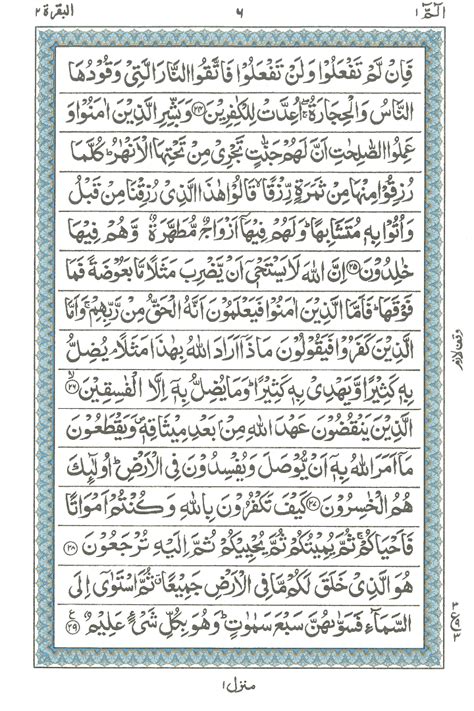 البقرة ٢
٦
الٓمّٓ ١
فَاِنۡ لَّمۡ تَفۡعَلُوۡا وَلَنۡ تَفۡعَلُوۡا فَاتَّقُوا النَّارَ الَّتِىۡ وَقُوۡدُهَا
النَّاسُ وَالۡحِجَارَةُ ۖۚ اُعِدَّتۡ لِلۡكٰفِرِيۡنَ ﴿٢٤﴾ وَبَشِّرِ الَّذِيۡنَ اٰمَنُوۡا وَ
عَمِلُوا الصّٰلِحٰتِ اَنَّ لَهُمۡ جَنّٰتٍ تَجۡرِىۡ مِنۡ تَحۡتِهَا الۡاَنۡهٰرُ ؕ كُلَّمَا
رُزِقُوۡا مِنۡهَا مِنۡ ثَمَرَةٍ رِّزۡقًا ۙ قَالُوۡا هٰذَا الَّذِىۡ رُزِقۡنَا مِنۡ قَبۡلُ
وَاُتُوۡا بِهٖ مُتَشَابِهًا ؕ وَلَهُمۡ فِيۡهَآ اَزۡوَاجٌ مُّطَهَّرَةٌ ۙ وَّهُمۡ فِيۡهَا
خٰلِدُوۡنَ ﴿٢٥﴾ اِنَّ اللّٰهَ لَا يَسۡتَحۡىٖۤ اَنۡ يَّضۡرِبَ مَثَلًا مَّا بَعُوۡضَةً فَمَا
فَوۡقَهَا ؕ فَاَمَّا الَّذِيۡنَ اٰمَنُوۡا فَيَعۡلَمُوۡنَ اَنَّهُ الۡحَقُّ مِنۡ رَّبِّهِمۡ ۚ وَاَمَّا
الَّذِيۡنَ كَفَرُوۡا فَيَقُوۡلُوۡنَ مَاذَآ اَرَادَ اللّٰهُ بِهٰذَا مَثَلًا ۘ يُضِلُّ
بِهٖ كَثِيۡرًا وَّيَهۡدِىۡ بِهٖ كَثِيۡرًا ؕ وَمَا يُضِلُّ بِهٖٓ اِلَّا الۡفٰسِقِيۡنَ ۙ ﴿٢٦﴾
الَّذِيۡنَ يَنۡقُضُوۡنَ عَهۡدَ اللّٰهِ مِنۡۢ بَعۡدِ مِيۡثَاقِهٖ ۪ وَيَقۡطَعُوۡنَ
مَآ اَمَرَ اللّٰهُ بِهٖٓ اَنۡ يُّوۡصَلَ وَيُفۡسِدُوۡنَ فِى الۡاَرۡضِ ؕ اُولٰٓئِكَ
هُمُ الۡخٰسِرُوۡنَ ﴿٢٧﴾ كَيۡفَ تَكۡفُرُوۡنَ بِاللّٰهِ وَكُنۡتُمۡ اَمۡوَاتًا
فَاَحۡيَاكُمۡ ۚ ثُمَّ يُمِيۡتُكُمۡ ثُمَّ يُحۡيِيۡكُمۡ ثُمَّ اِلَيۡهِ تُرۡجَعُوۡنَ ﴿٢٨﴾
هُوَ الَّذِىۡ خَلَقَ لَكُمۡ مَّا فِى الۡاَرۡضِ جَمِيۡعًا ۗ ثُمَّ اسۡتَوٰٓى اِلَى
السَّمَآءِ فَسَوّٰىهُنَّ سَبۡعَ سَمٰوٰتٍ ؕ وَهُوَ بِكُلِّ شَىۡءٍ عَلِيۡمٌ ﴿٢٩﴾
وقف لازم
ع
منزل ١